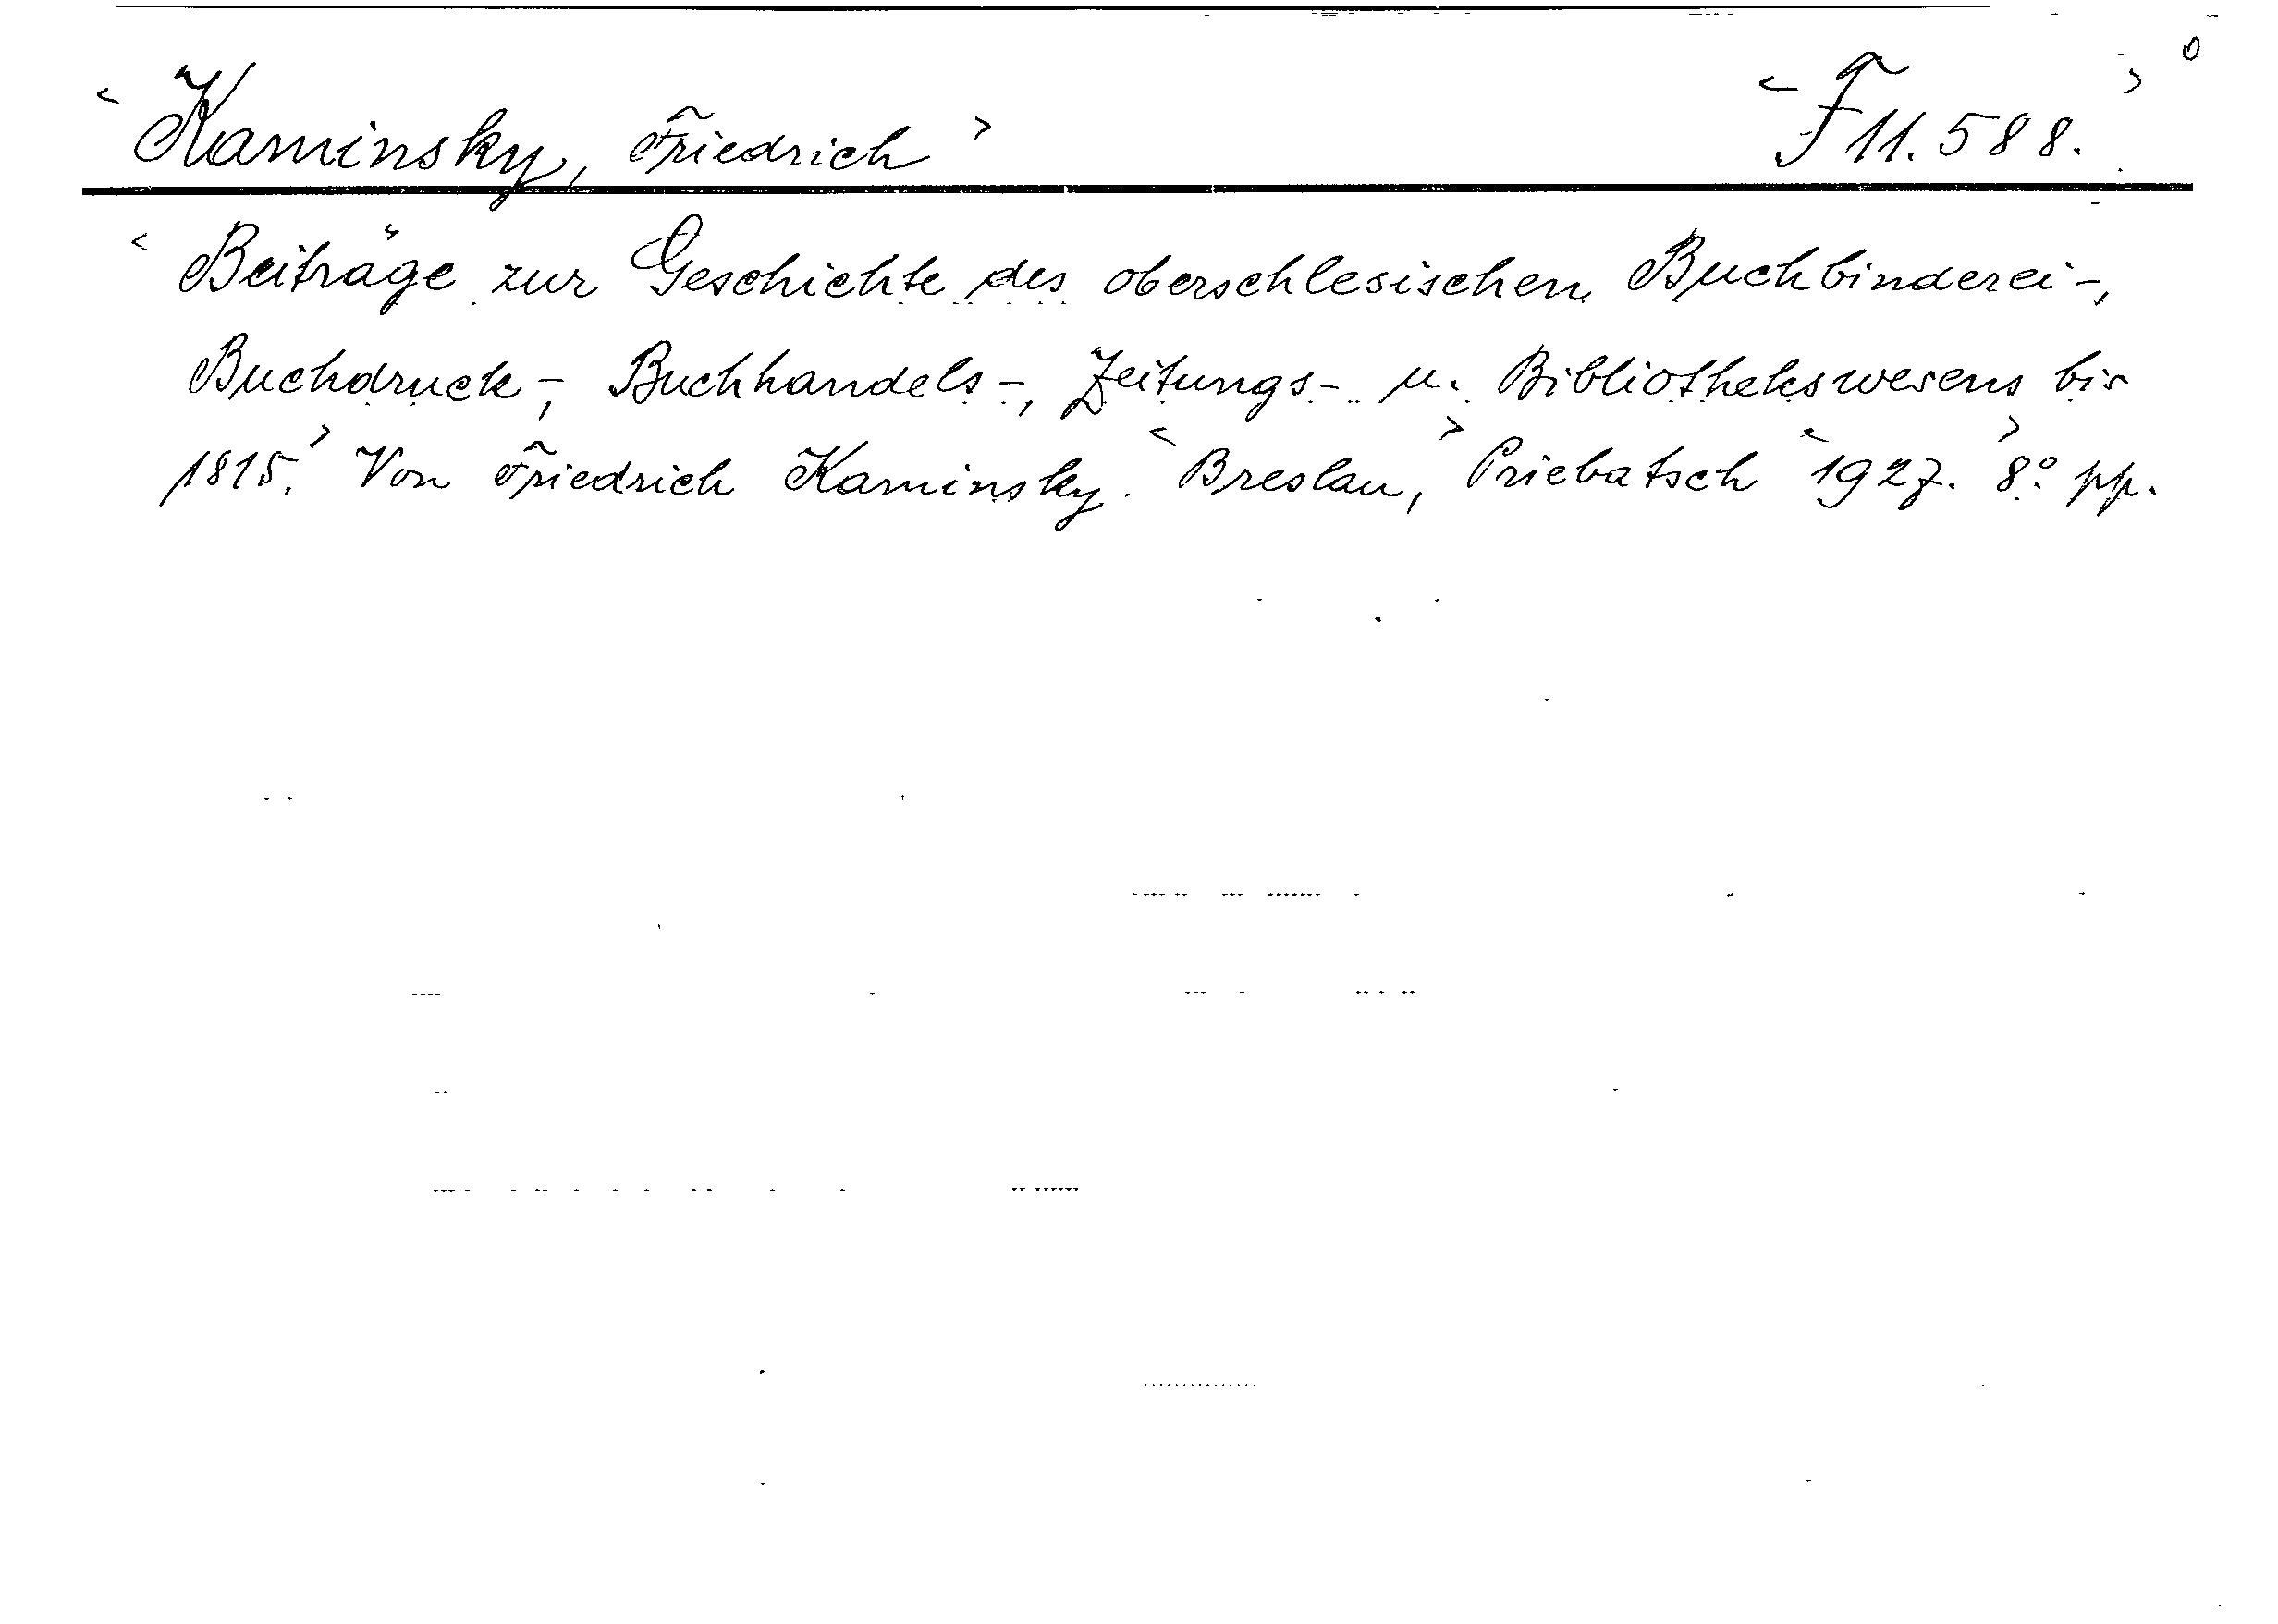 < Kaminsky, Friedrich > < F 11.588. > 0
< Beiträge zur Geschichte des oberschlesischen Buchbinderei-,
Buchdruck-, Buchhandels-, Zeitungs- u. Bibliothekswesens bis
1815. > Von Friedrich Kaminsky. < Breslau, > Priebatsch < 1927. > 8° pp.